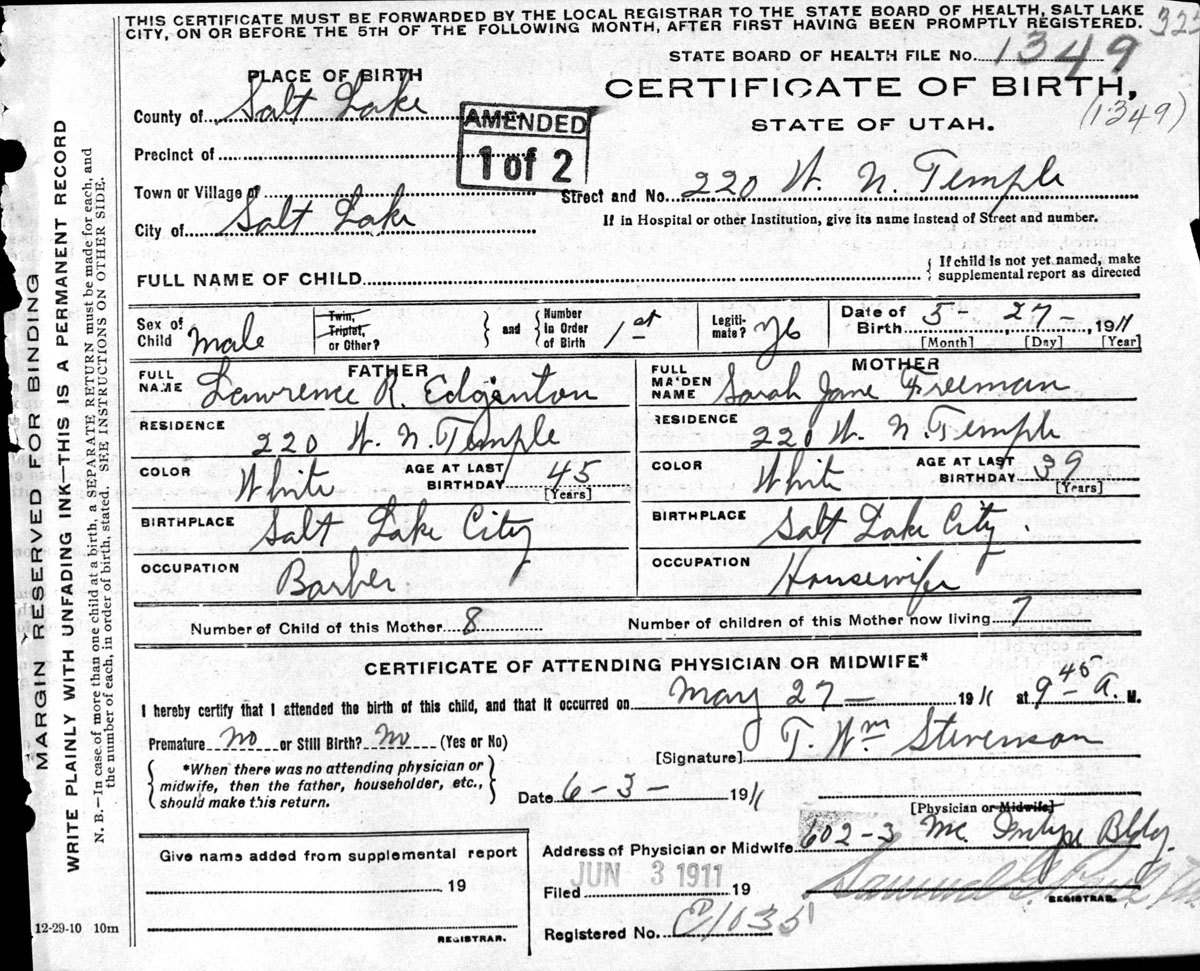 THIS CERTIFICATE MUST BE FORWARDED BY THE LOCAL REGISTRAR TO THE STATE BOARD OF HEALTH, SALT LAKE
CITY, ON OR BEFORE THE 5TH OF THE FOLLOWING MONTH, AFTER FIRST HAVING BEEN PROMPTLY REGISTERED.
STATE BOARD OF HEALTH FILE No. 1349
PLACE OF BIRTH
CERTIFICATE OF BIRTH,
(1349)
STATE OF UTAH.
County of Salt Lake
AMENDED
1 of 2
Precinct of
Town or Village of
Street and No. 220 W. N. Temple
City of Salt Lake
If in Hospital or other Institution, give its name instead of Street and number.
FULL NAME OF CHILD
{ If child is not yet named, make
supplemental report as directed
Sex of Child Male
Twin, Triplet, or Other?
and
Number in Order of Birth 1st
Legiti-mate?
Date of Birth 5- 27- 1911
[Month] [Day] [Year]
FATHER
FULL NAME Lawrence R. Edginton
RESIDENCE 220 W. N. Temple
COLOR White AGE AT LAST BIRTHDAY 45 [Years]
BIRTHPLACE Salt Lake City
OCCUPATION Barber
MOTHER
FULL MAIDEN NAME Sarah Jane Freeman
RESIDENCE 220 W. N. Temple
COLOR White AGE AT LAST BIRTHDAY 39 [Years]
BIRTHPLACE Salt Lake City.
OCCUPATION Housewife
Number of Child of this Mother 8 Number of children of this Mother now living 7
CERTIFICATE OF ATTENDING PHYSICIAN OR MIDWIFE*
I hereby certify that I attended the birth of this child, and that it occurred on May 27- 1911 at 9 A. M.
Premature no or Still Birth? no (Yes or No)
[Signature] T. Wm Stevenson
*When there was no attending physician or
midwife, then the father, householder, etc.,
should make this return.
Date 6-3- 1911
[Physician or Midwife]
Address of Physician or Midwife 602-3 Mc Intyre Bldg.
Give name added from supplemental report
19
REGISTRAR.
Filed JUN 3 1911 19
REGISTRAR.
Registered No. 1035
12-29-10 10m
MARGIN RESERVED FOR BINDING
WRITE PLAINLY WITH UNFADING INK—THIS IS A PERMANENT RECORD
N. B.—In case of more than one child at a birth, a SEPARATE RETURN must be made for each, and
the number of each, in order of birth, stated. SEE INSTRUCTIONS ON OTHER SIDE.